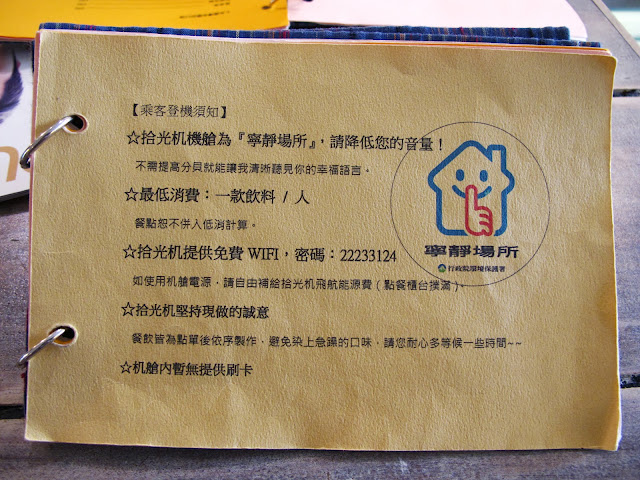 【乘客登機須知】
☆拾光机機艙為『寧靜場所』，請降低您的音量！
不需提高分貝就能讓我清晰聽見你的幸福語言。
☆最低消費：一款飲料 / 人
餐點恕不併入低消計算。
☆拾光机提供免費 WIFI，密碼：22233124
如使用机艙電源，請自由補給拾光机飛航能源費（點餐櫃台撲滿）。
☆拾光机堅持現做的誠意
餐飲皆為點單後依序製作，避免染上急躁的口味，請您耐心多等候一些時間~~
☆机艙內暫無提供刷卡
寧靜場所
行政院環境保護署